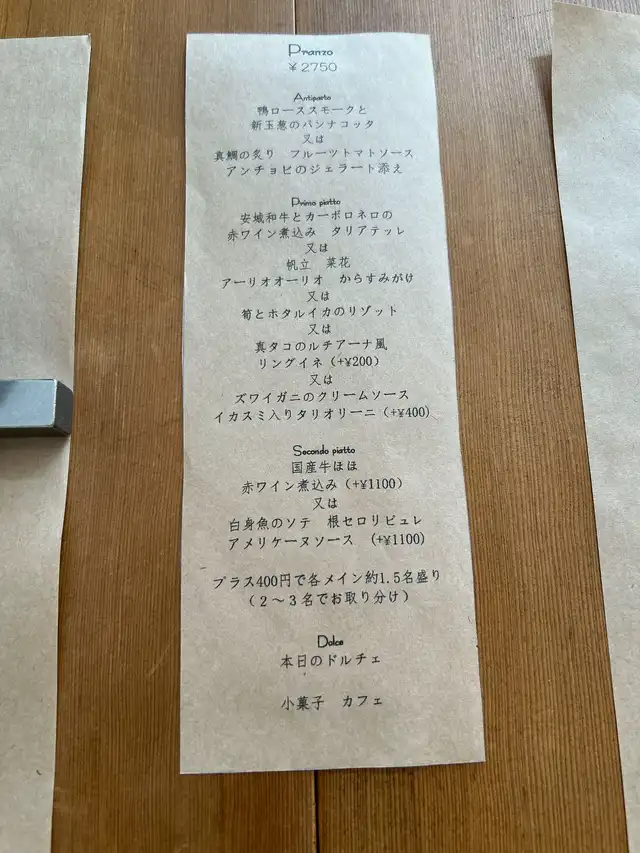 Pranzo
￥2750
Antipasto
鴨ローススモークと
新玉葱のパンナコッタ
又は
真鯛の炙り　フルーツトマトソース
アンチョビのジェラート添え
Primo piatto
安城和牛とカーボロネロの
赤ワイン煮込み　タリアテッレ
又は
帆立　菜花
アーリオオーリオ　からすみがけ
又は
筍とホタルイカのリゾット
又は
真タコのルチアーナ風
リングイネ（+¥200）
又は
ズワイガニのクリームソース
イカスミ入りタリオリーニ（+¥400）
Secondo piatto
国産牛ほほ
赤ワイン煮込み（+¥1100）
又は
白身魚のソテ　根セロリピュレ
アメリケーヌソース　（+¥1100）
プラス400円で各メイン約1.5名盛り
（２〜３名でお取り分け）
Dolce
本日のドルチェ
小菓子　カフェ